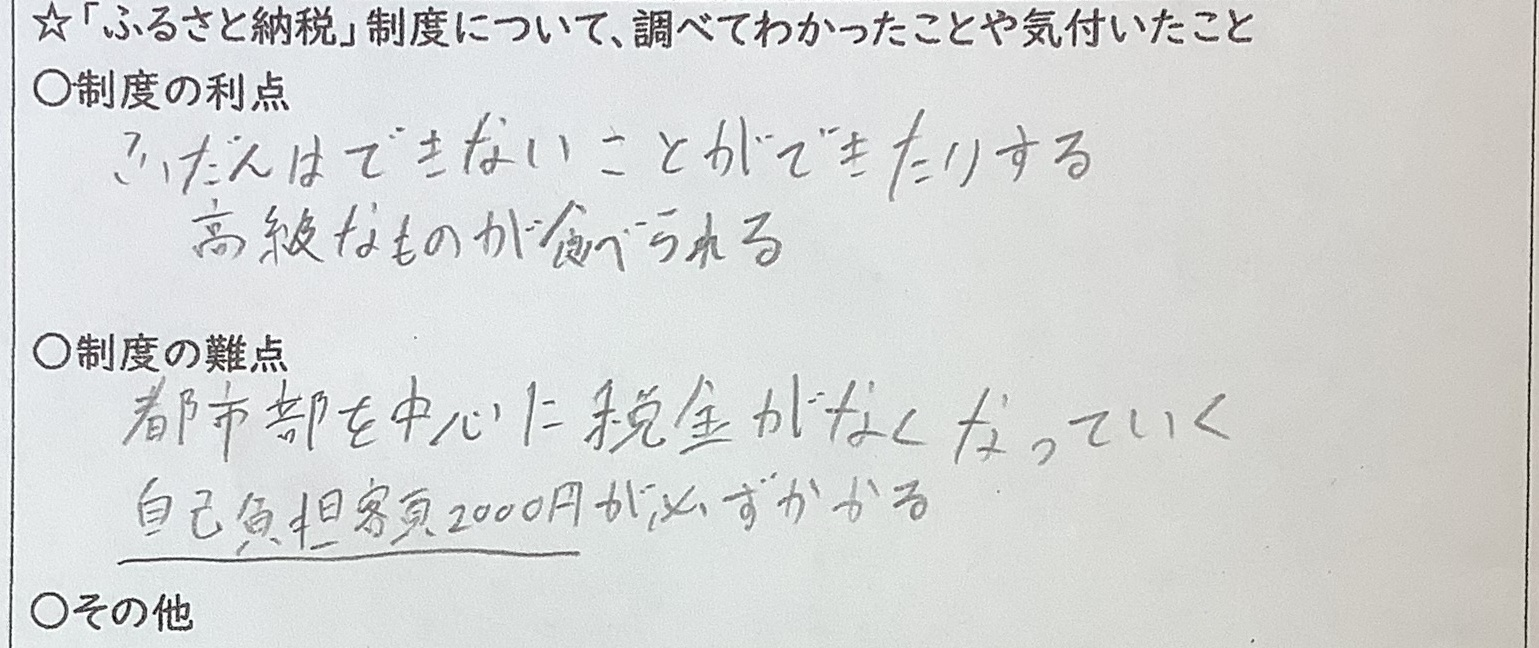 ☆「ふるさと納税」制度について、調べてわかったことや気付いたこと
○制度の利点
ふだんはできないことができたりする
高級なものが食べられる
○制度の難点
都市部を中心に税金がなくなっていく
自己負担額2000円が必ずかかる
○その他